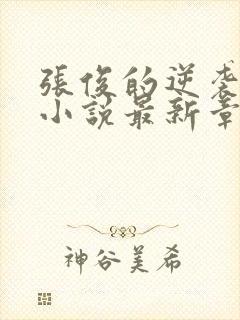 張俊的逆袭
小説最新章
神谷美希